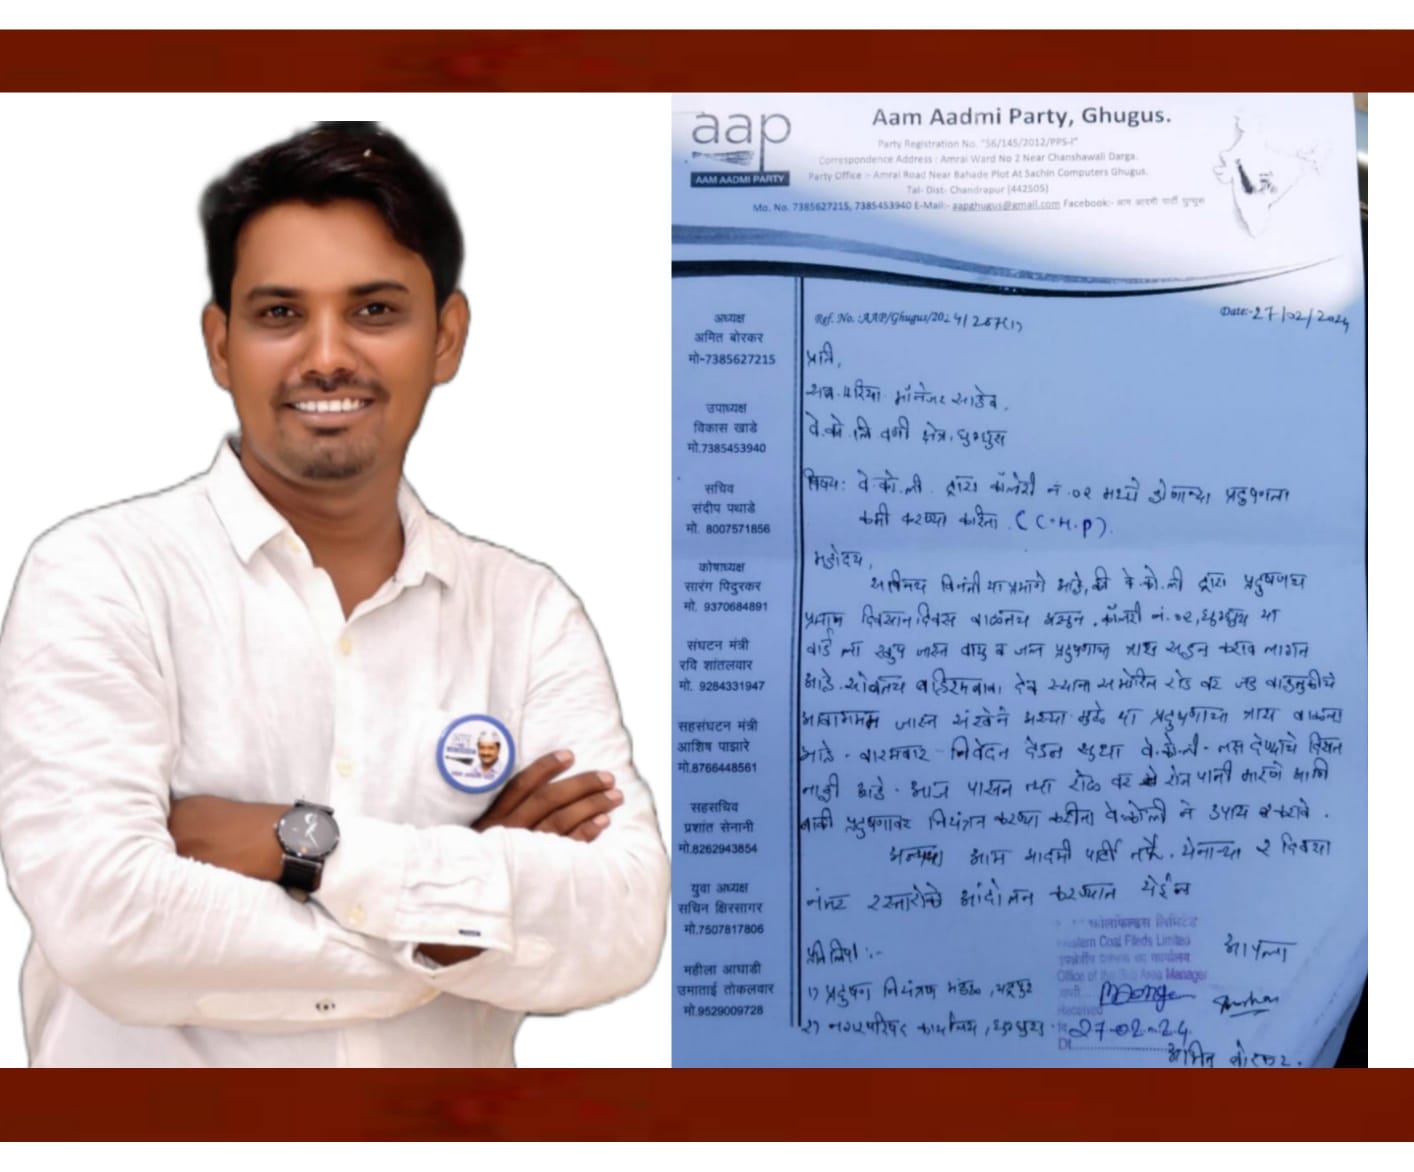 aap
AAM AADMI PARTY
Aam Aadmi Party, Ghugus.
Party Registration No. "56/145/2012/PPS-I"
Correspondence Address : Amrai Ward No 2 Near Chanshawali Darga.
Party Office :- Amrai Road Near Bahade Plot At Sachin Computers Ghugus.
Tal- Dist- Chandrapur (442505)
Mo. No. 7385627215, 7385453940 E-Mail:- aapghugus@gmail.com Facebook:- आम आदमी पार्टी घुग्घुस
अध्यक्ष
अमित बोरकर
मो-7385627215
उपाध्यक्ष
विकास खाडे
मो.7385453940
सचिव
संदीप पथाडे
मो. 8007571856
कोषाध्यक्ष
सारंग पिदुरकर
मो. 9370684891
संघटन मंत्री
रवि शांतलवार
मो. 9284331947
सहसंघटन मंत्री
आशिष पाझारे
मो.8766448561
सहसचिव
प्रशांत सेनानी
मो.8262943854
युवा अध्यक्ष
सचिन क्षिरसागर
मो.7507817806
महीला आघाडी
उमाताई तोकलवार
मो.9529009728
Ref. No. :AAP/Ghugus/2024/267(1)
Date:-27/02/2024
प्रति,
सब एरिया मॅनेजर साहेब,
वे.को.लि वणी क्षेत्र, घुग्घुस
विषय: वे.को.ली. द्वारा कॉलरी नं.०२ मध्ये होणाऱ्या प्रदुषणला
कमी करण्या करिता. (C.H.P).
महोदय,
सविनय विनंती या प्रमाणे आहे, की वे.को.ली द्वारा प्रदुषणाच
प्रमाण दिवसान दिवस वाळतच असुन, कॉलरी नं.०२, घुग्घुस या
वार्ड ला खुप जास्त वायु व जल प्रदुषणाचा त्रास सहन कराव लागत
आहे. सोबतच बहिरमबाबा देव स्थाना समोरिल रोड वर जड वाहतुकीचे
जास्त संख्येने या प्रदुषणाचा त्रास वाळला
आहे. वारमवार निवेदन देऊन सुधा वे.को.ली.
नाही आहे. आज पासन त्या रोड वर रोज पानी मारणे आणि
बाकी प्रदुषणावर नियंत्रन करण्या करीता वेकोली ने उपाय करावे.
अन्यथा आम आदमी पार्टी तर्फे येनाऱ्या २ दिवसा
नंतर रस्तारोको आंदोलन करण्यात येईल
प्रतीलिपी :-
१) प्रदुषण नियंत्रण मंडळ, चंद्रपुर
२) नगरपरिषद कार्यालय, घुग्घुस.
कोलफिल्ड्स लिमिटेड
Western Coal Fields Limited
Office of the Sub Area Manager
Received
27-02-24
Dt
आपला
अमित बोरकर.